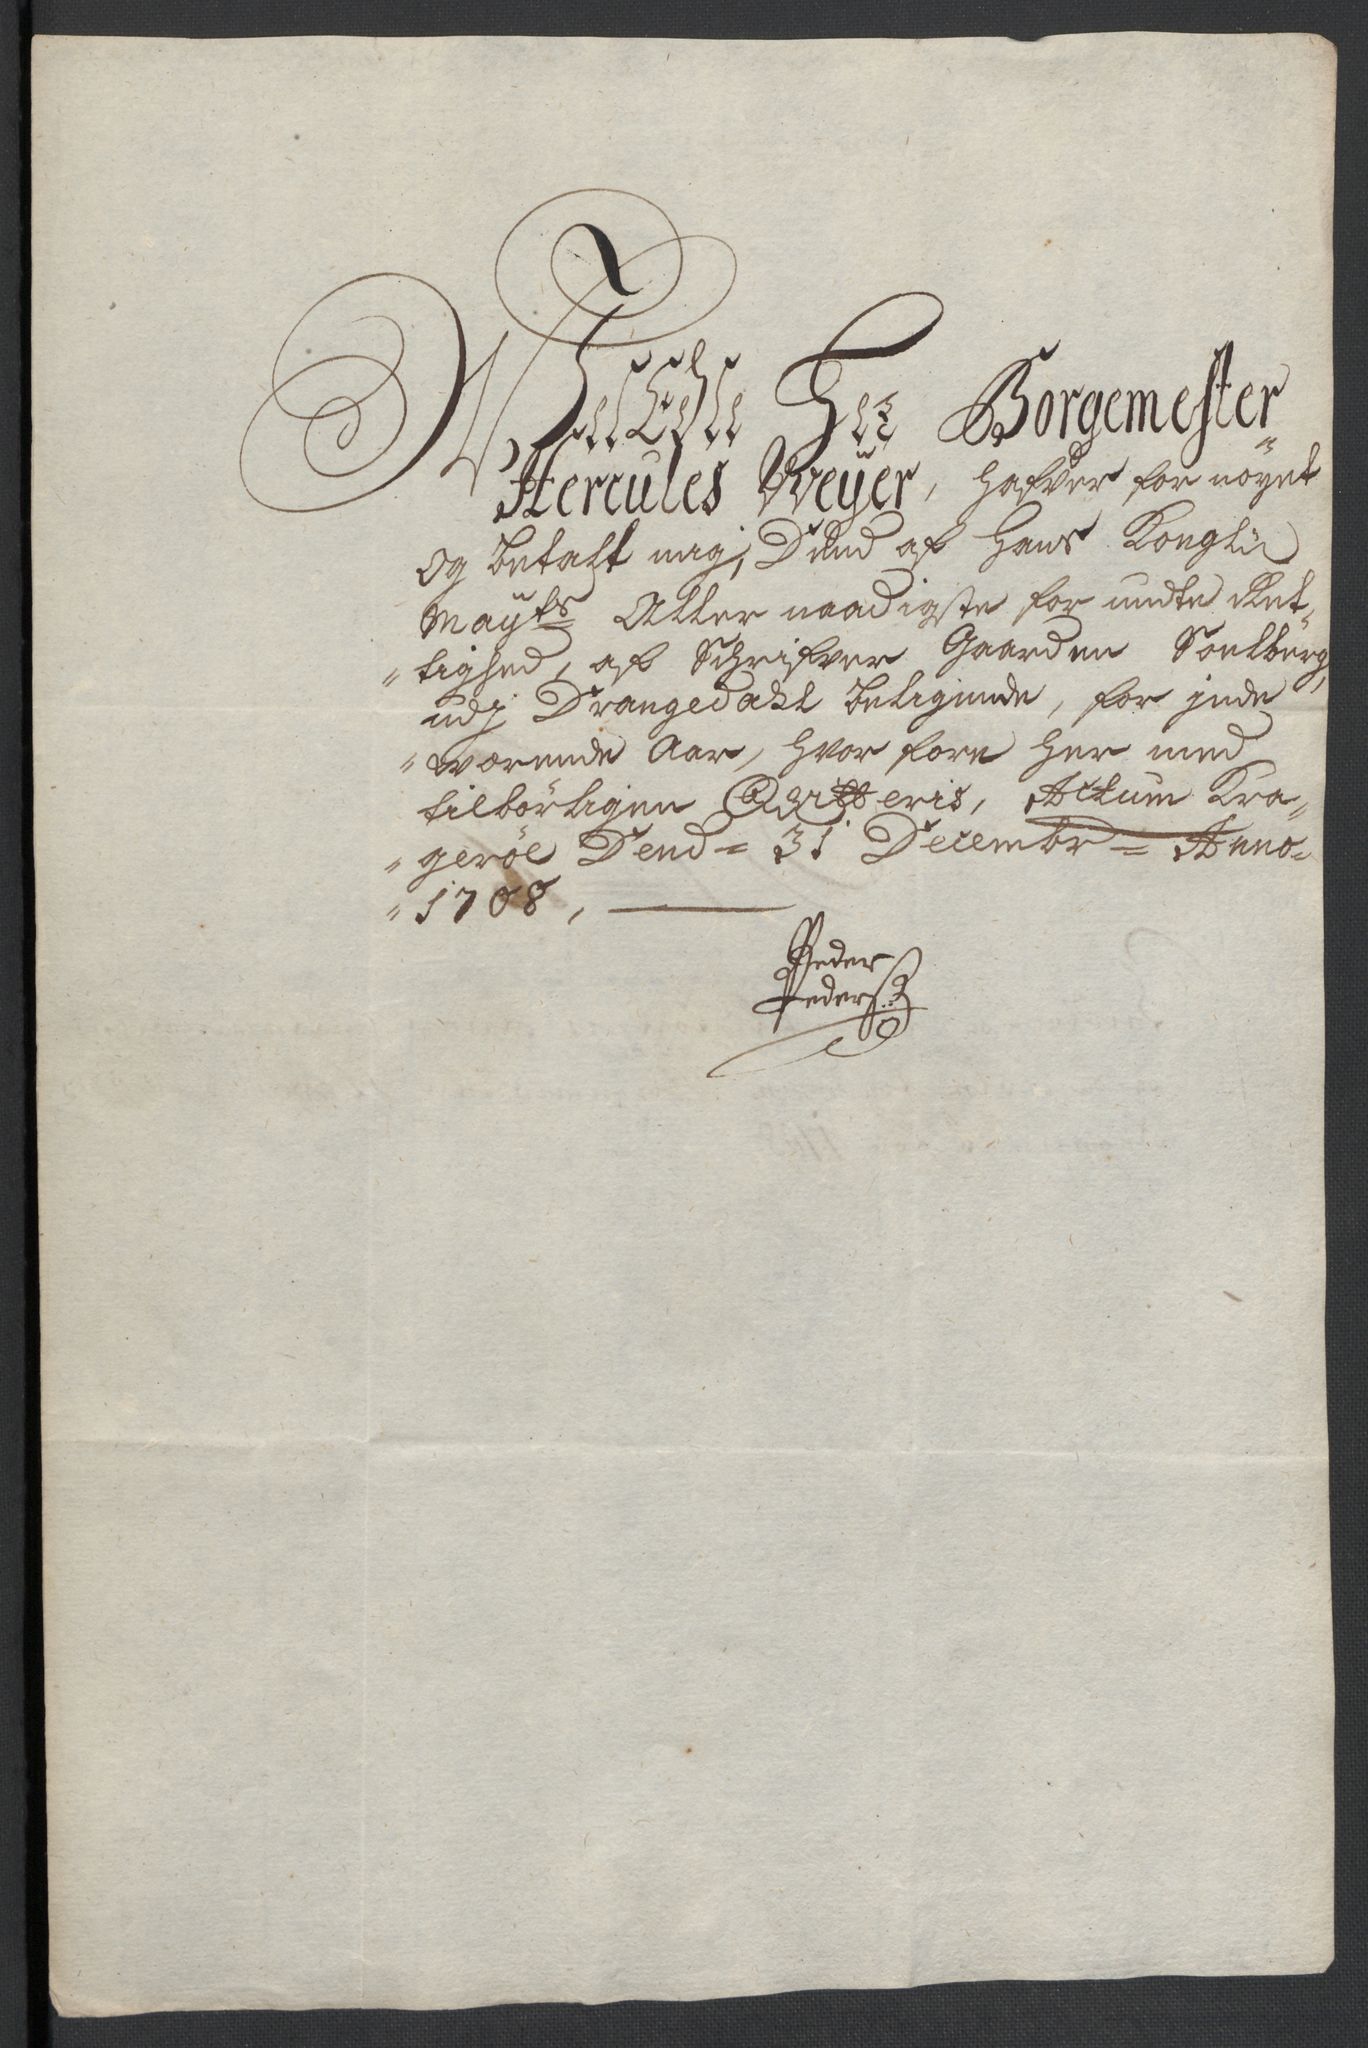 WelEdle Hr: Borgemester
Hercules Weÿer, hafver for nöÿet
og betalt mig, Dend af Hans Kongl:
Maÿts Aller naadigste for undte Ret-
"tighed, af Schrifver Gaarden Soelberg,
udj Drangedahl beligende, for inde
"wærende Aar, hvor fore her med
tilbörligen Qvitteris, Actum Kra-
"geröe Dend= 31 Decembr= Anno=
"1708,
Peder
Pederß